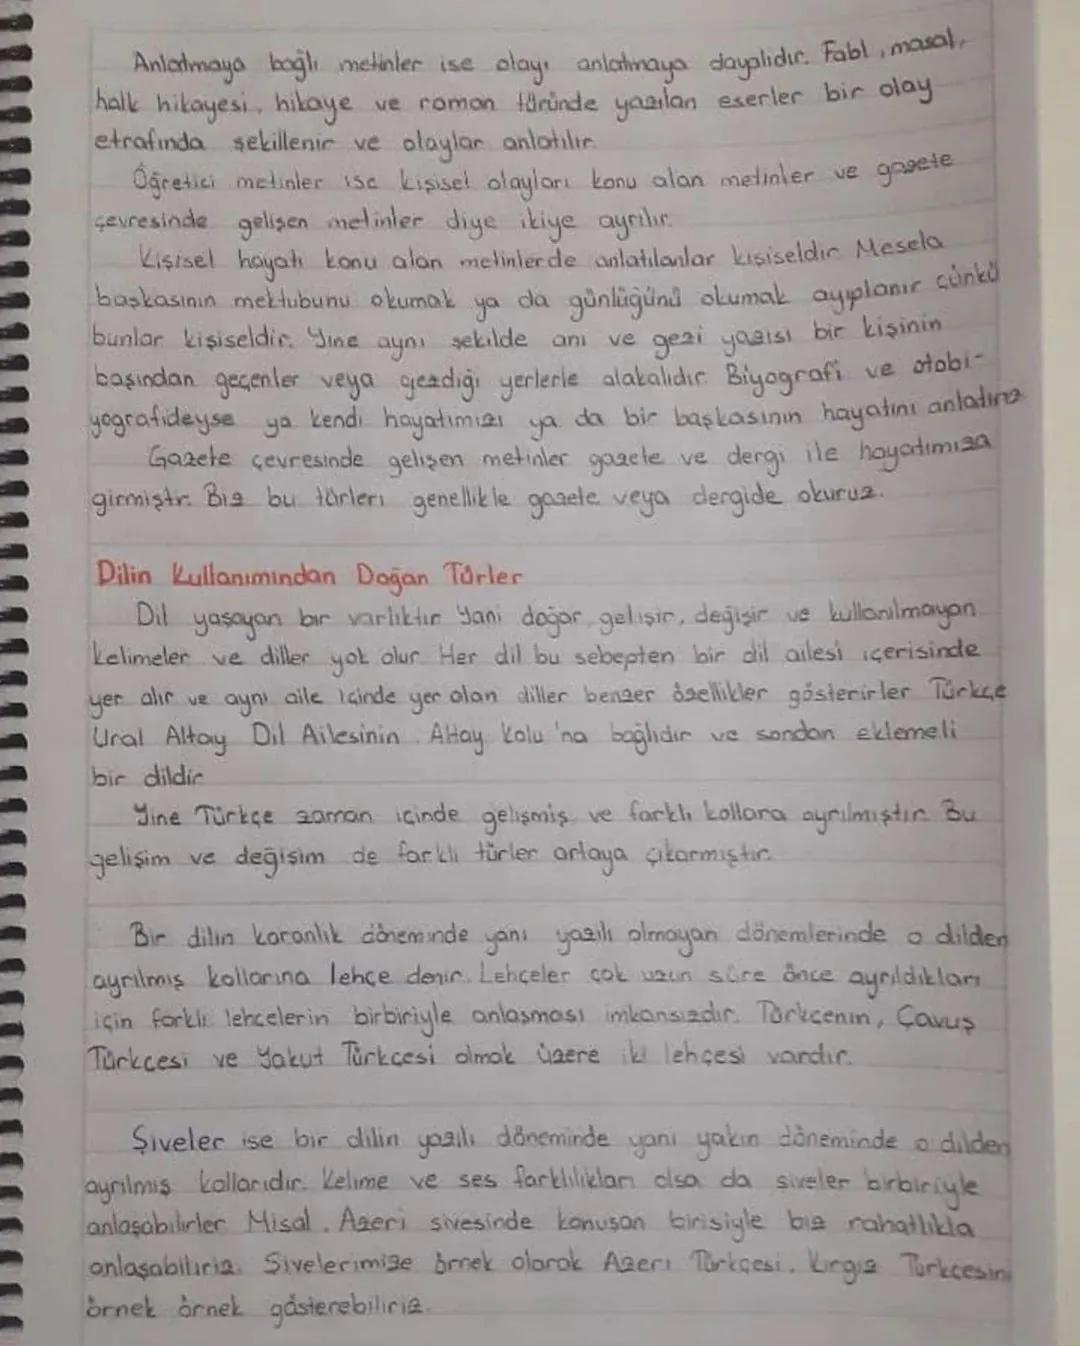 Anlatmaya bağlı metinler ise olayı anlatmaya dayalıdır. Fabl, masal,
halk hikayesi, hikaye ve roman türünde yazılan eserler bir olay
etrafında şekillenir ve olaylar anlatılır.
Öğretici metinler ise kişisel olayları konu alan metinler ve gazete
çevresinde gelişen metinler diye ikiye ayrılır.
Kişisel hayatı konu alan metinlerde anlatılanlar kişiseldir. Mesela
başkasının mektubunu okumak ya da günlüğünü okumak ayıplanır çünkü
bunlar kişiseldir. Yine aynı şekilde anı ve gezi yazısı bir kişinin
başından geçenler veya gezdiği yerlerle alakalıdır. Biyografi ve otobi-
yografideyse ya kendi hayatımızı ya da bir başkasının hayatını anlatırız.
Gazete çevresinde gelişen metinler gazete ve dergi ile hayatımıza
girmiştir. Biz bu türleri genellikle gazete veya dergide okuruz.
Dilin Kullanımından Doğan Türler
Dil yaşayan bir varlıktır. Yani doğar, gelişir, değişir ve kullanılmayan
kelimeler ve diller yok olur. Her dil bu sebepten bir dil ailesi içerisinde
yer alır ve aynı aile içinde yer alan diller benzer özellikler gösterirler. Türkçe
Ural Altay Dil Ailesinin Altay Kolu'na bağlıdır ve sondan eklemeli
bir dildir.
Yine Türkçe zaman içinde gelişmiş ve farklı kollara ayrılmıştır. Bu
gelişim ve değişim de farklı türler ortaya çıkarmıştır.
Bir dilin karanlık döneminde yani yazılı olmayan dönemlerinde o dilden
ayrılmış kollarına lehçe denir. Lehçeler çok uzun süre önce ayrıldıkları
için farklı lehçelerin birbiriyle anlaşması imkansızdır. Türkçenin, Çavuş
Türkçesi ve Yakut Türkçesi olmak üzere iki lehçesi vardır.
Şiveler ise bir dilin yazılı döneminde yani yakın döneminde o dilden
ayrılmış kollarıdır. Kelime ve ses farklılıkları olsa da şiveler birbiriyle
anlaşabilirler. Misal, Azeri şivesinde konuşan birisiyle biz rahatlıkla
anlaşabiliriz. Şivelerimize örnek olarak Azeri Türkçesi, Kırgız Türkçesini
örnek örnek gösterebiliriz.